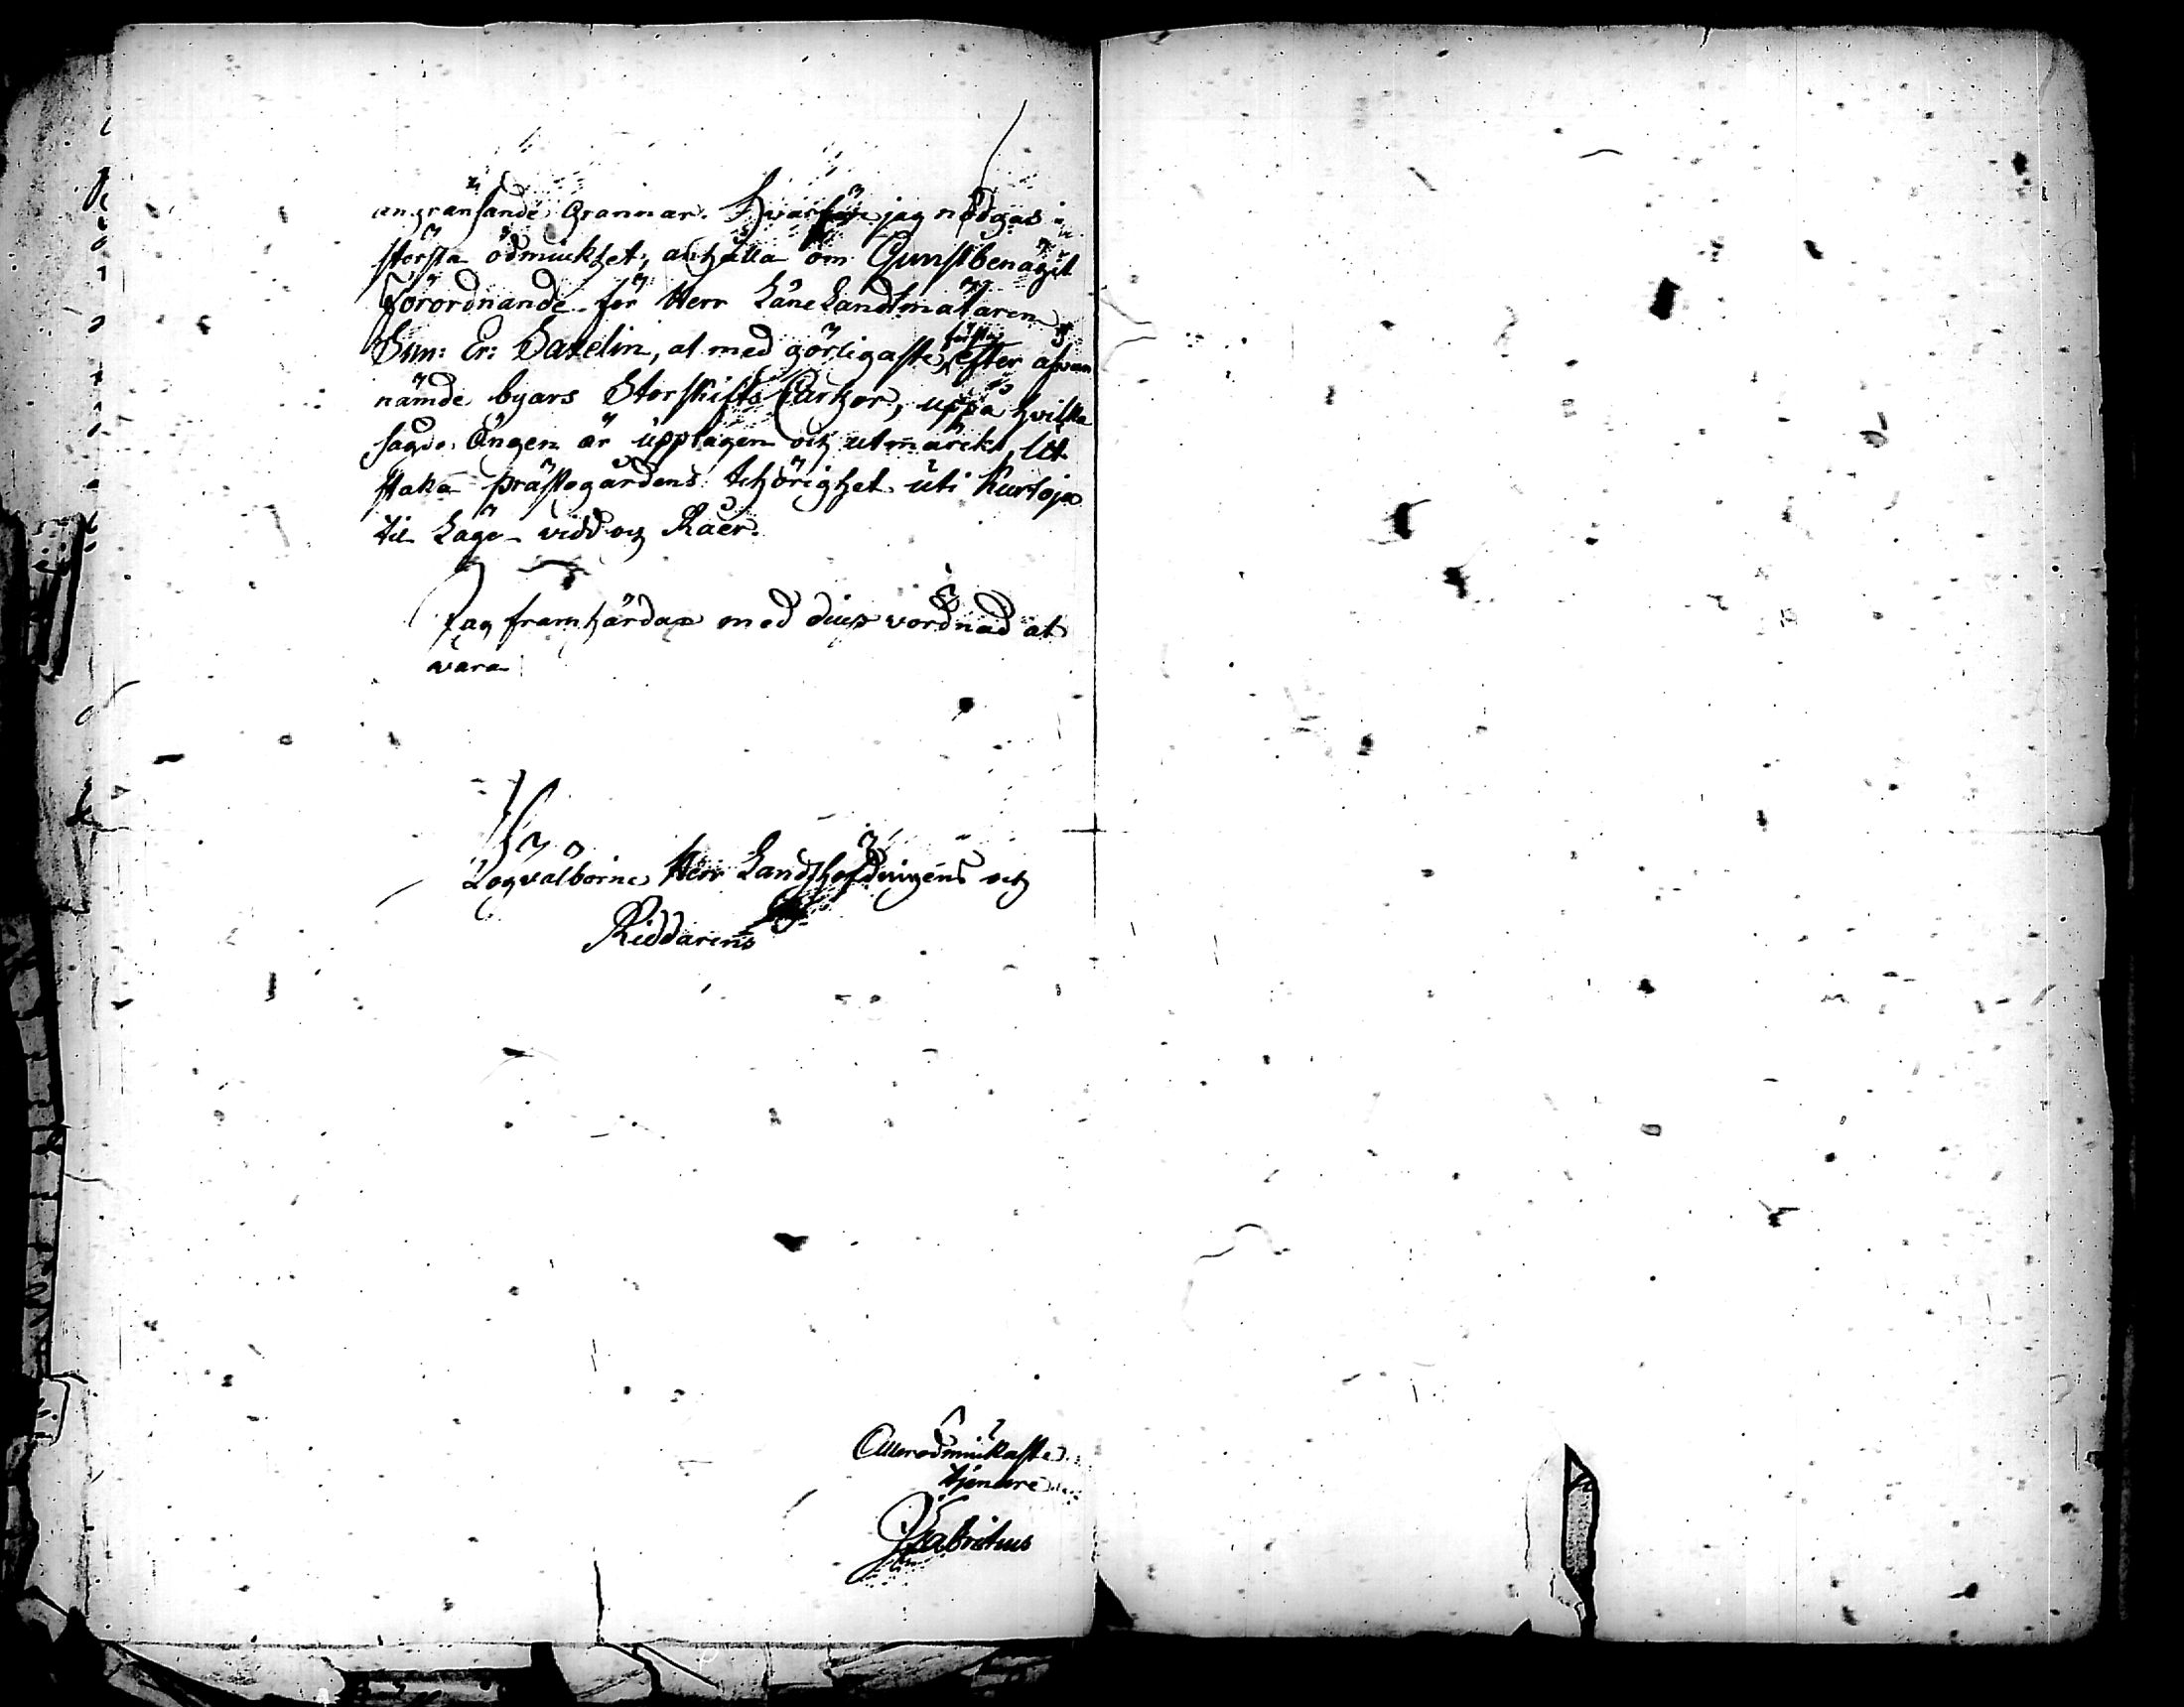 angränsande Grannar. Hvarföre jag nödgas i
största ödmiukhet, anhålla om Gunstbenägit
Förordnande för Herr Läne Landtmätaren
Sam: Er: Saxelin, at med görligaste första efter afvan
nämde byars Storskifts Cartor, uppå hvilka
sagde Ängen är upptagen och utmärckt, Ut
staka prästegårdens tilhörighet uti Kurtoja
til Läge vidd och Råer.
Jag framhärdar med diup vördnad at
vara
Högvälborne Herr Landshöfdingens och
Riddarens
Allerödmiukaste
tjenare
Fabritius